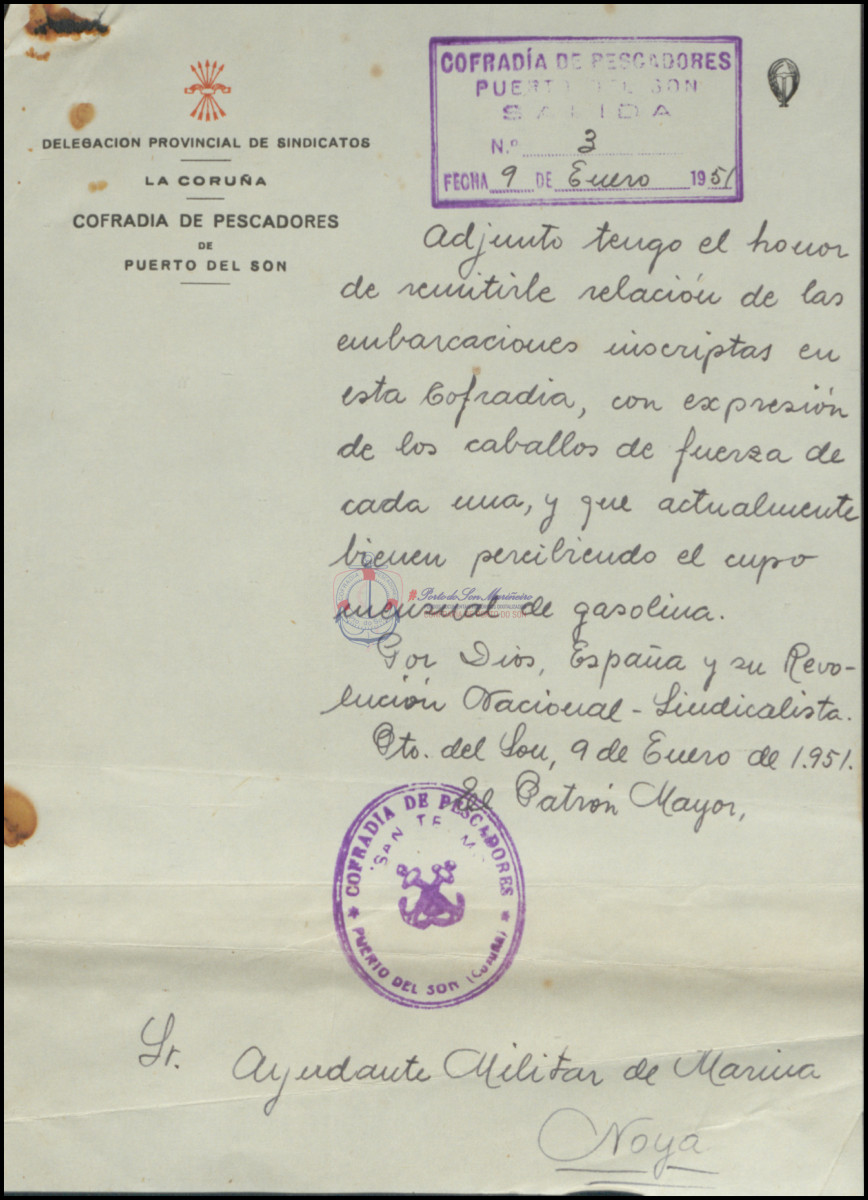 DELEGACION PROVINCIAL DE SINDICATOS
LA CORUÑA
COFRADIA DE PESCADORES
DE
PUERTO DEL SON
COFRADÍA DE PESCADORES
PUERTO DEL SON
SALIDA
N.º 3
FECHA 9 DE Enero 1951
Adjunto tengo el honor
de remitirle relación de las
embarcaciones inscriptas en
esta Cofradia, con expresión
de los caballos de fuerza de
cada una, y que actualmente
bienen percibiendo el cupo
mensual de gasolina.
#PortodoSonMariñeiro
Por Dios, España y su Revo-
lución Nacional-Sindicalista.
Pto. del Son, 9 de Enero de 1.951.
El Patrón Mayor,
COFRADIA DE PESCADORES
"SAN TE M
* PUERTO DEL SON (CORUÑA) *
Sr. Ayudante Militar de Marina
Noya